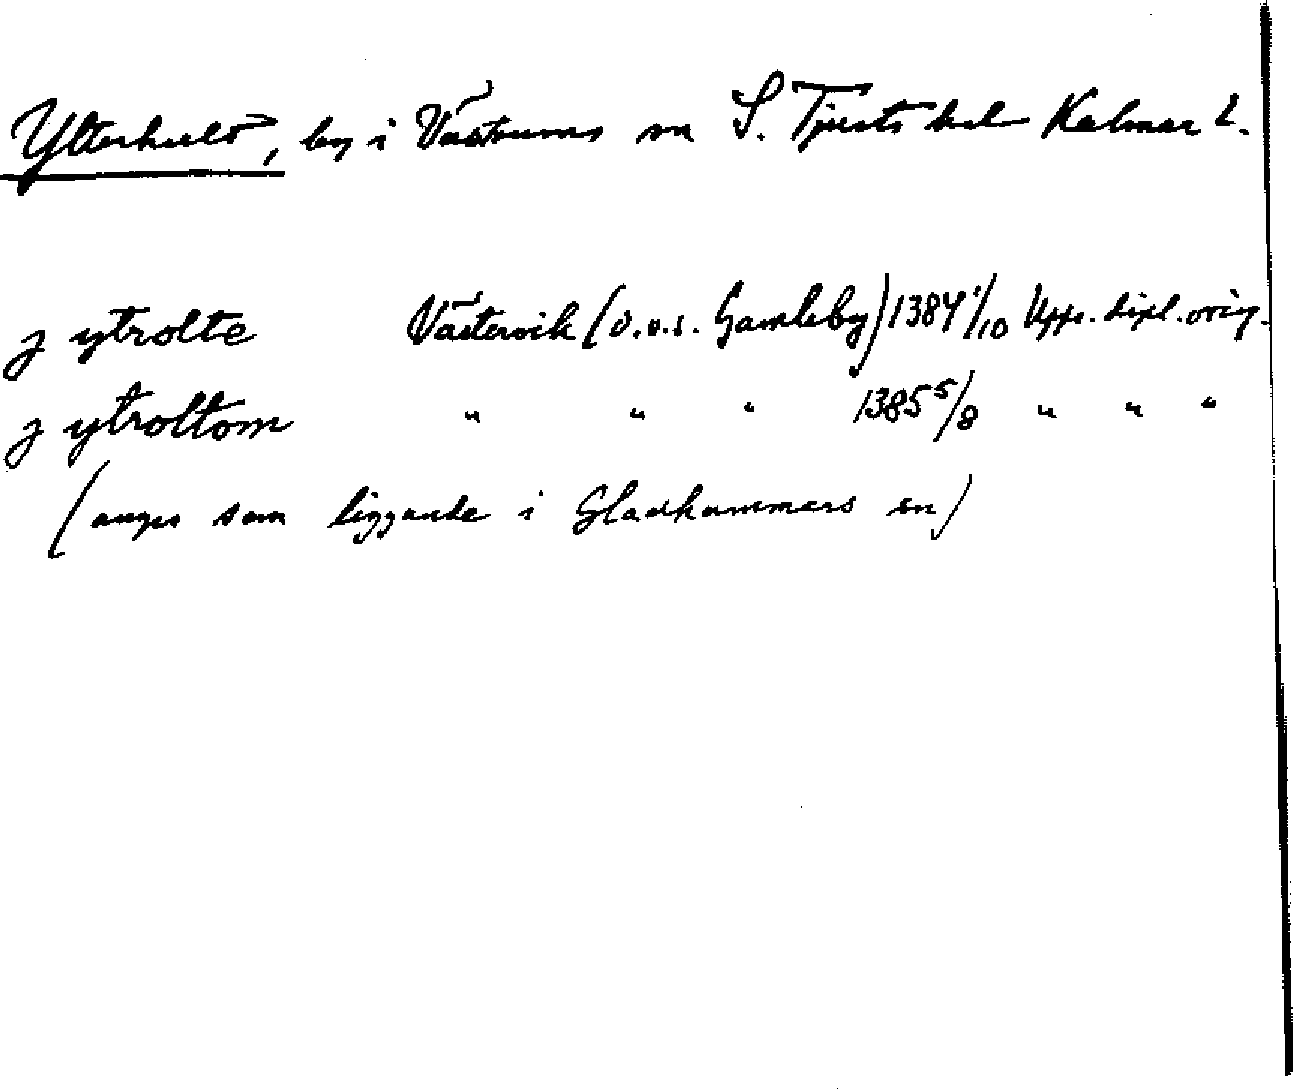 Ytterhult, by i Västrums sn S. Tjusts hd Kalmar l.
j ytrolte Västervik (d.v.s. Gamleby) 1384 1/10 Upps. dipl. orig.
j ytroltom " " " 1385 5/8 " " "
(anges som liggande i Gladhammars sn)